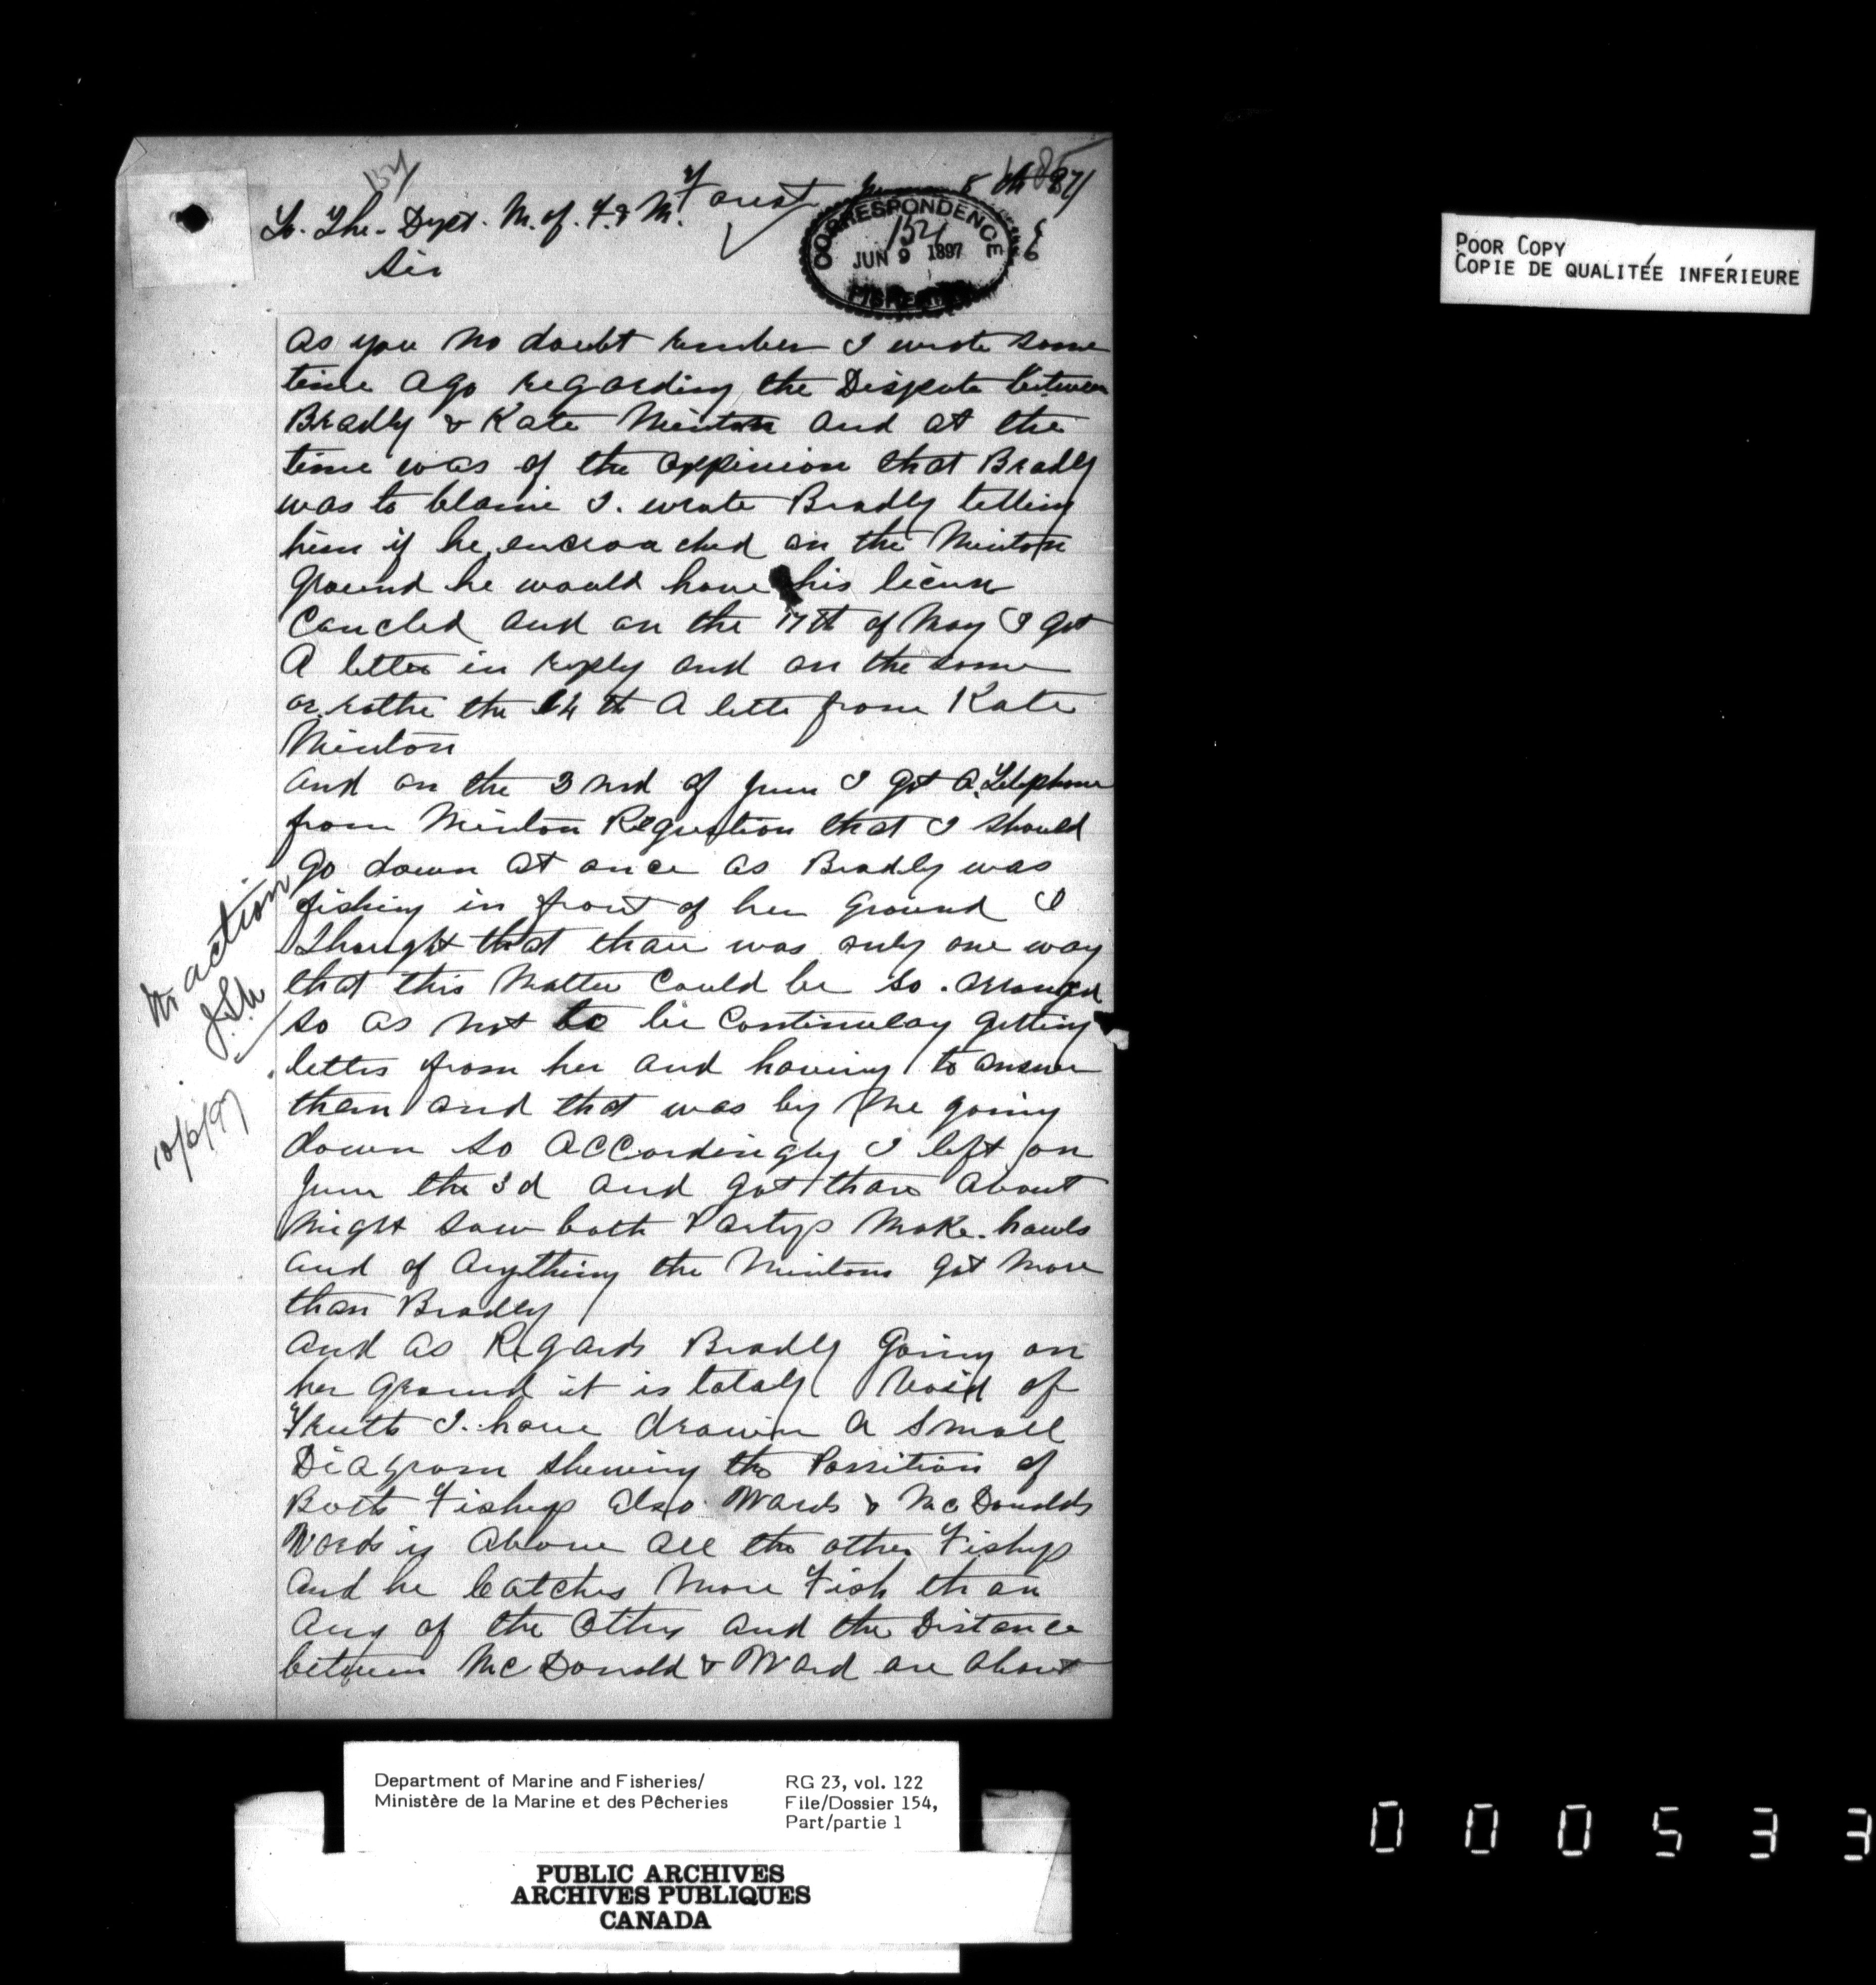 154
Forest June 8th 97
To. The. Dept. M. of. F. & M.
Sir
CORRESPONDENCE
154
JUN 9 1897
FISHERIES
POOR COPY
COPIE DE QUALITÉE INFÉRIEURE
as you no doubt rember I wrote some
time ago regarding the Dispute between
Bradly & Kate Minton and at the
time was of the oppinion that Bradly
was to blame I. wrote Bradly telling
him if he encroached on the Minton
ground he would have his licens
Cancled and on the 17th of May I got
A letter in reply and on the same
or rathe the 14 th A lette from Kate
Minton
and on the 2nd of June I got A Telephone
from Minton Requstion that I should
go down at once as Bradly was
fishing in front of her ground I
thought that thare was only one way
that this Matter Could be so. arranged
so as not to be Continulay getting
letters from her and having to answer
tham and that was by Me going
down so accordingly I left on
June the 3d and got thare about
night saw both Partys make. hauls
and if Anything the Mintons got more
than Bradly
and as Regards Bradly going on
her ground it is totaly Void of
Truth I. have drawn a small
Diagram shewing the Possition of
Both Fishrys also Wards & McDonalds
Wards is above all the other Fishrys
and he Catches More Fish than
any of the Others and the Distance
between McDonald & Ward are about
No action
10/6/97
Department of Marine and Fisheries/
Ministère de la Marine et des Pêcheries
RG 23, vol. 122
File/Dossier 154,
Part/partie 1
PUBLIC ARCHIVES
ARCHIVES PUBLIQUES
CANADA
000533